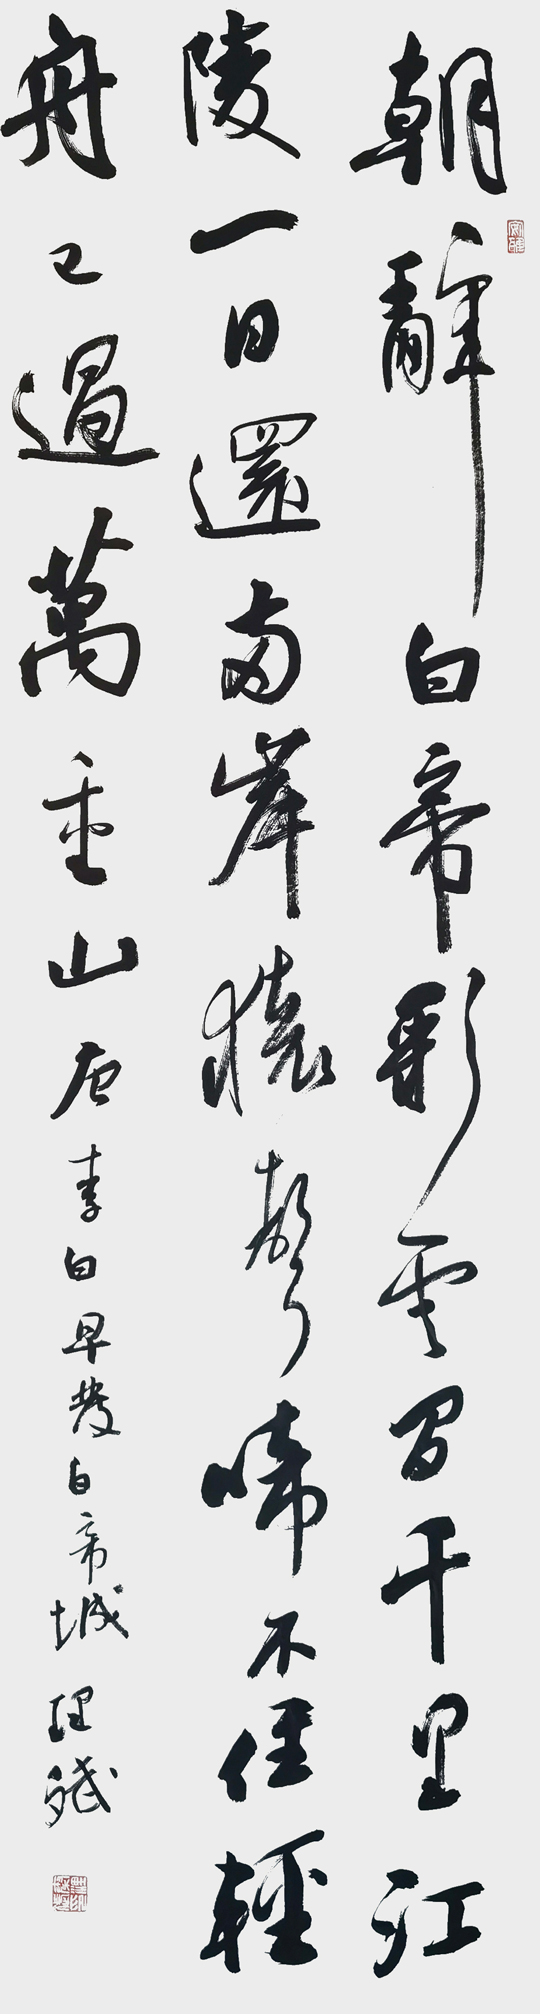 朝辭白帝彩雲間千里江
陵一日還兩岸猿聲啼不住輕
舟已過萬重山唐李白早發白帝城理斌